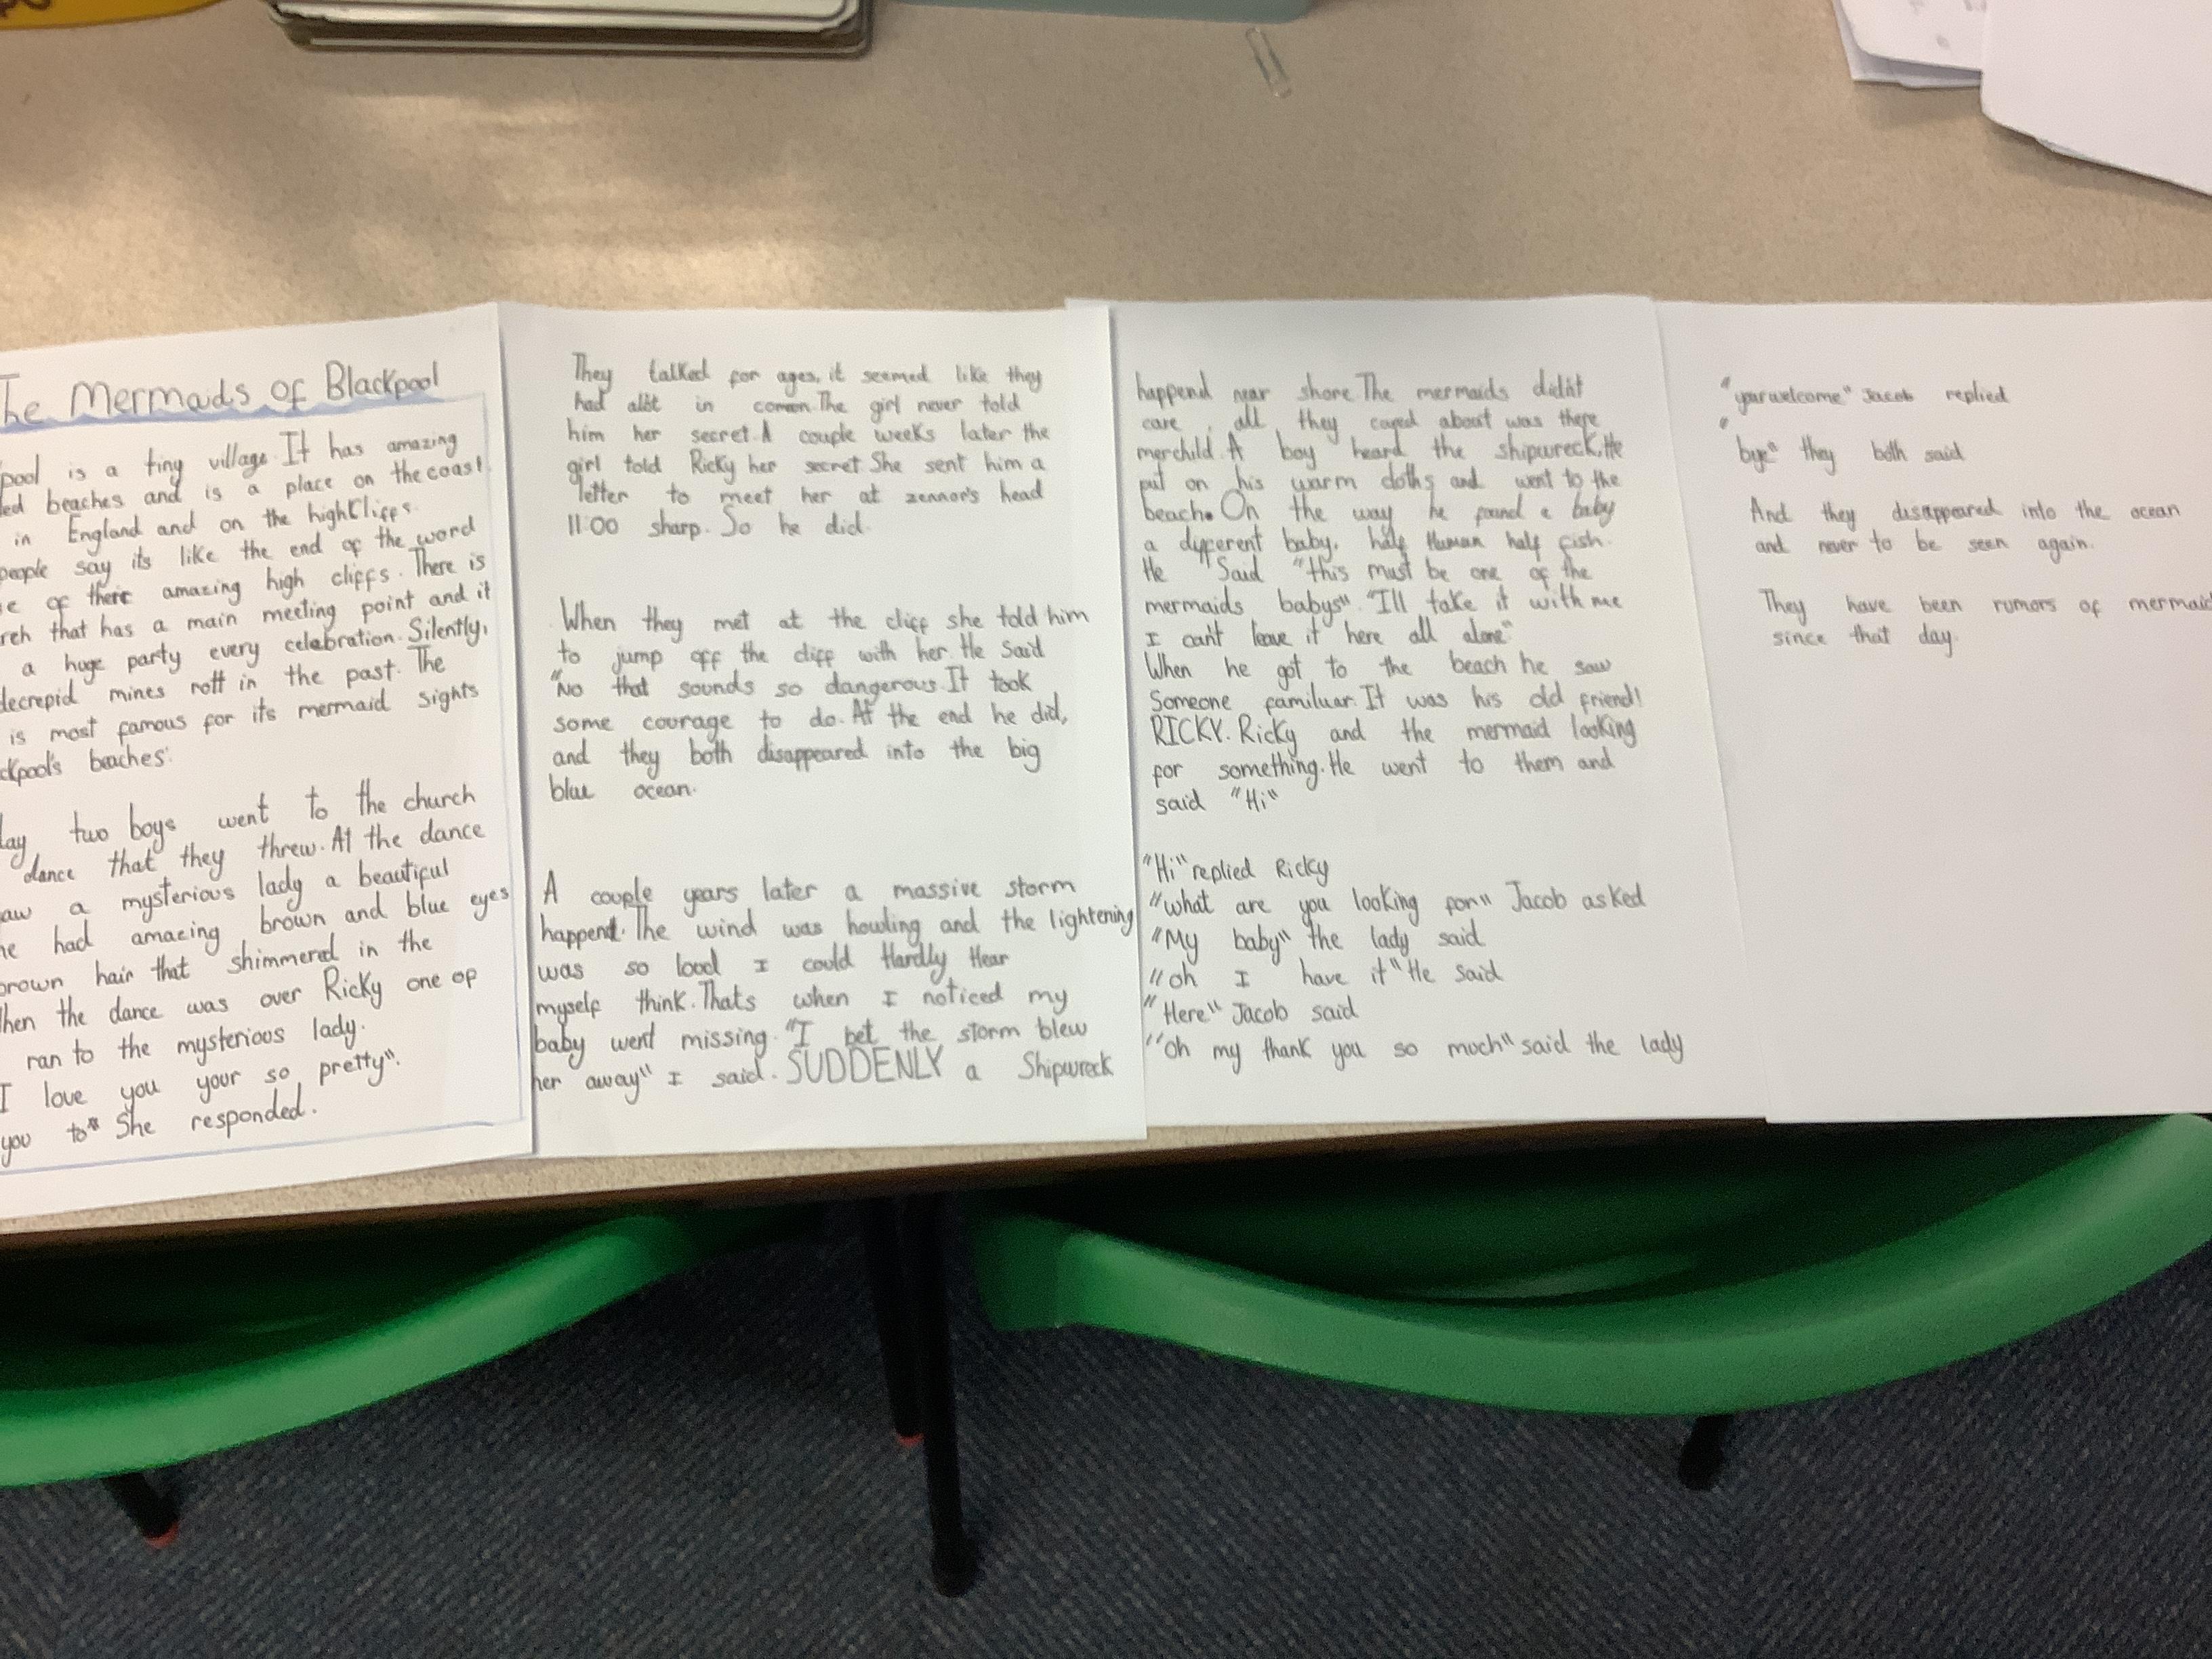 The Mermaids of Blackpool
pool is a tiny village. It has amazing
beaches and is a place on the coast.
in England and on the high Cliffs.
people say its like the end of the word
of there amazing high cliffs. There is
that has a main meeting point and it
a huge party every celebration. Silently,
decrepid mines rott in the past. The
is most famous for its mermaid sights
beaches.
two boys went to the church
dance that they threw. At the dance
a mysterious lady a beautiful
had amazing brown and blue eyes
brown hair that shimmered in the
the dance was over Ricky one of
ran to the mysterious lady.
I love you your so pretty".
you to" She responded.
They talked for ages, it seemed like they
had allt in comon. The girl never told
him her secret. A couple weeks later the
girl told Ricky her secret. She sent him a
letter to meet her at zennor's head
11:00 sharp. So he did.
When they met at the cliff she told him
to jump off the cliff with her. He Said
"No that sounds so dangerous. It took
some courage to do. At the end he did,
and they both disappeared into the big
blue ocean.
A couple years later a massive storm
happend. The wind was howling and the lightening
was so loud I could Hardly Hear
myself think. Thats when I noticed my
baby went missing. "I bet the storm blew
her away" I said. SUDDENLY a Shipwreck
happend near shore. The mermaids didn't
care, all they cared about was there
merchild. A boy heard the shipwreck. He
put on his warm cloths and went to the
beach. On the way he found a baby
a different baby, half Human half fish.
He "Said "this must be one of the
mermaids babys". "I'll take it with me
I can't leave it here all alone"
When he got to the beach he saw
Someone familuar. It was his old friend!
RICKY. Ricky and the mermaid looking
for something. He went to them and
said "Hi"
"Hi" replied Ricky
"what are you looking for" Jacob asked
"My baby" the lady said
"oh I have it" He said
"Here" Jacob said
"Oh my thank you so much" said the lady
"your welcome" Jacob replied
"bye" they both said
And they disappeared into the ocean
and never to be seen again.
They have been rumors of mermaid
since that day.